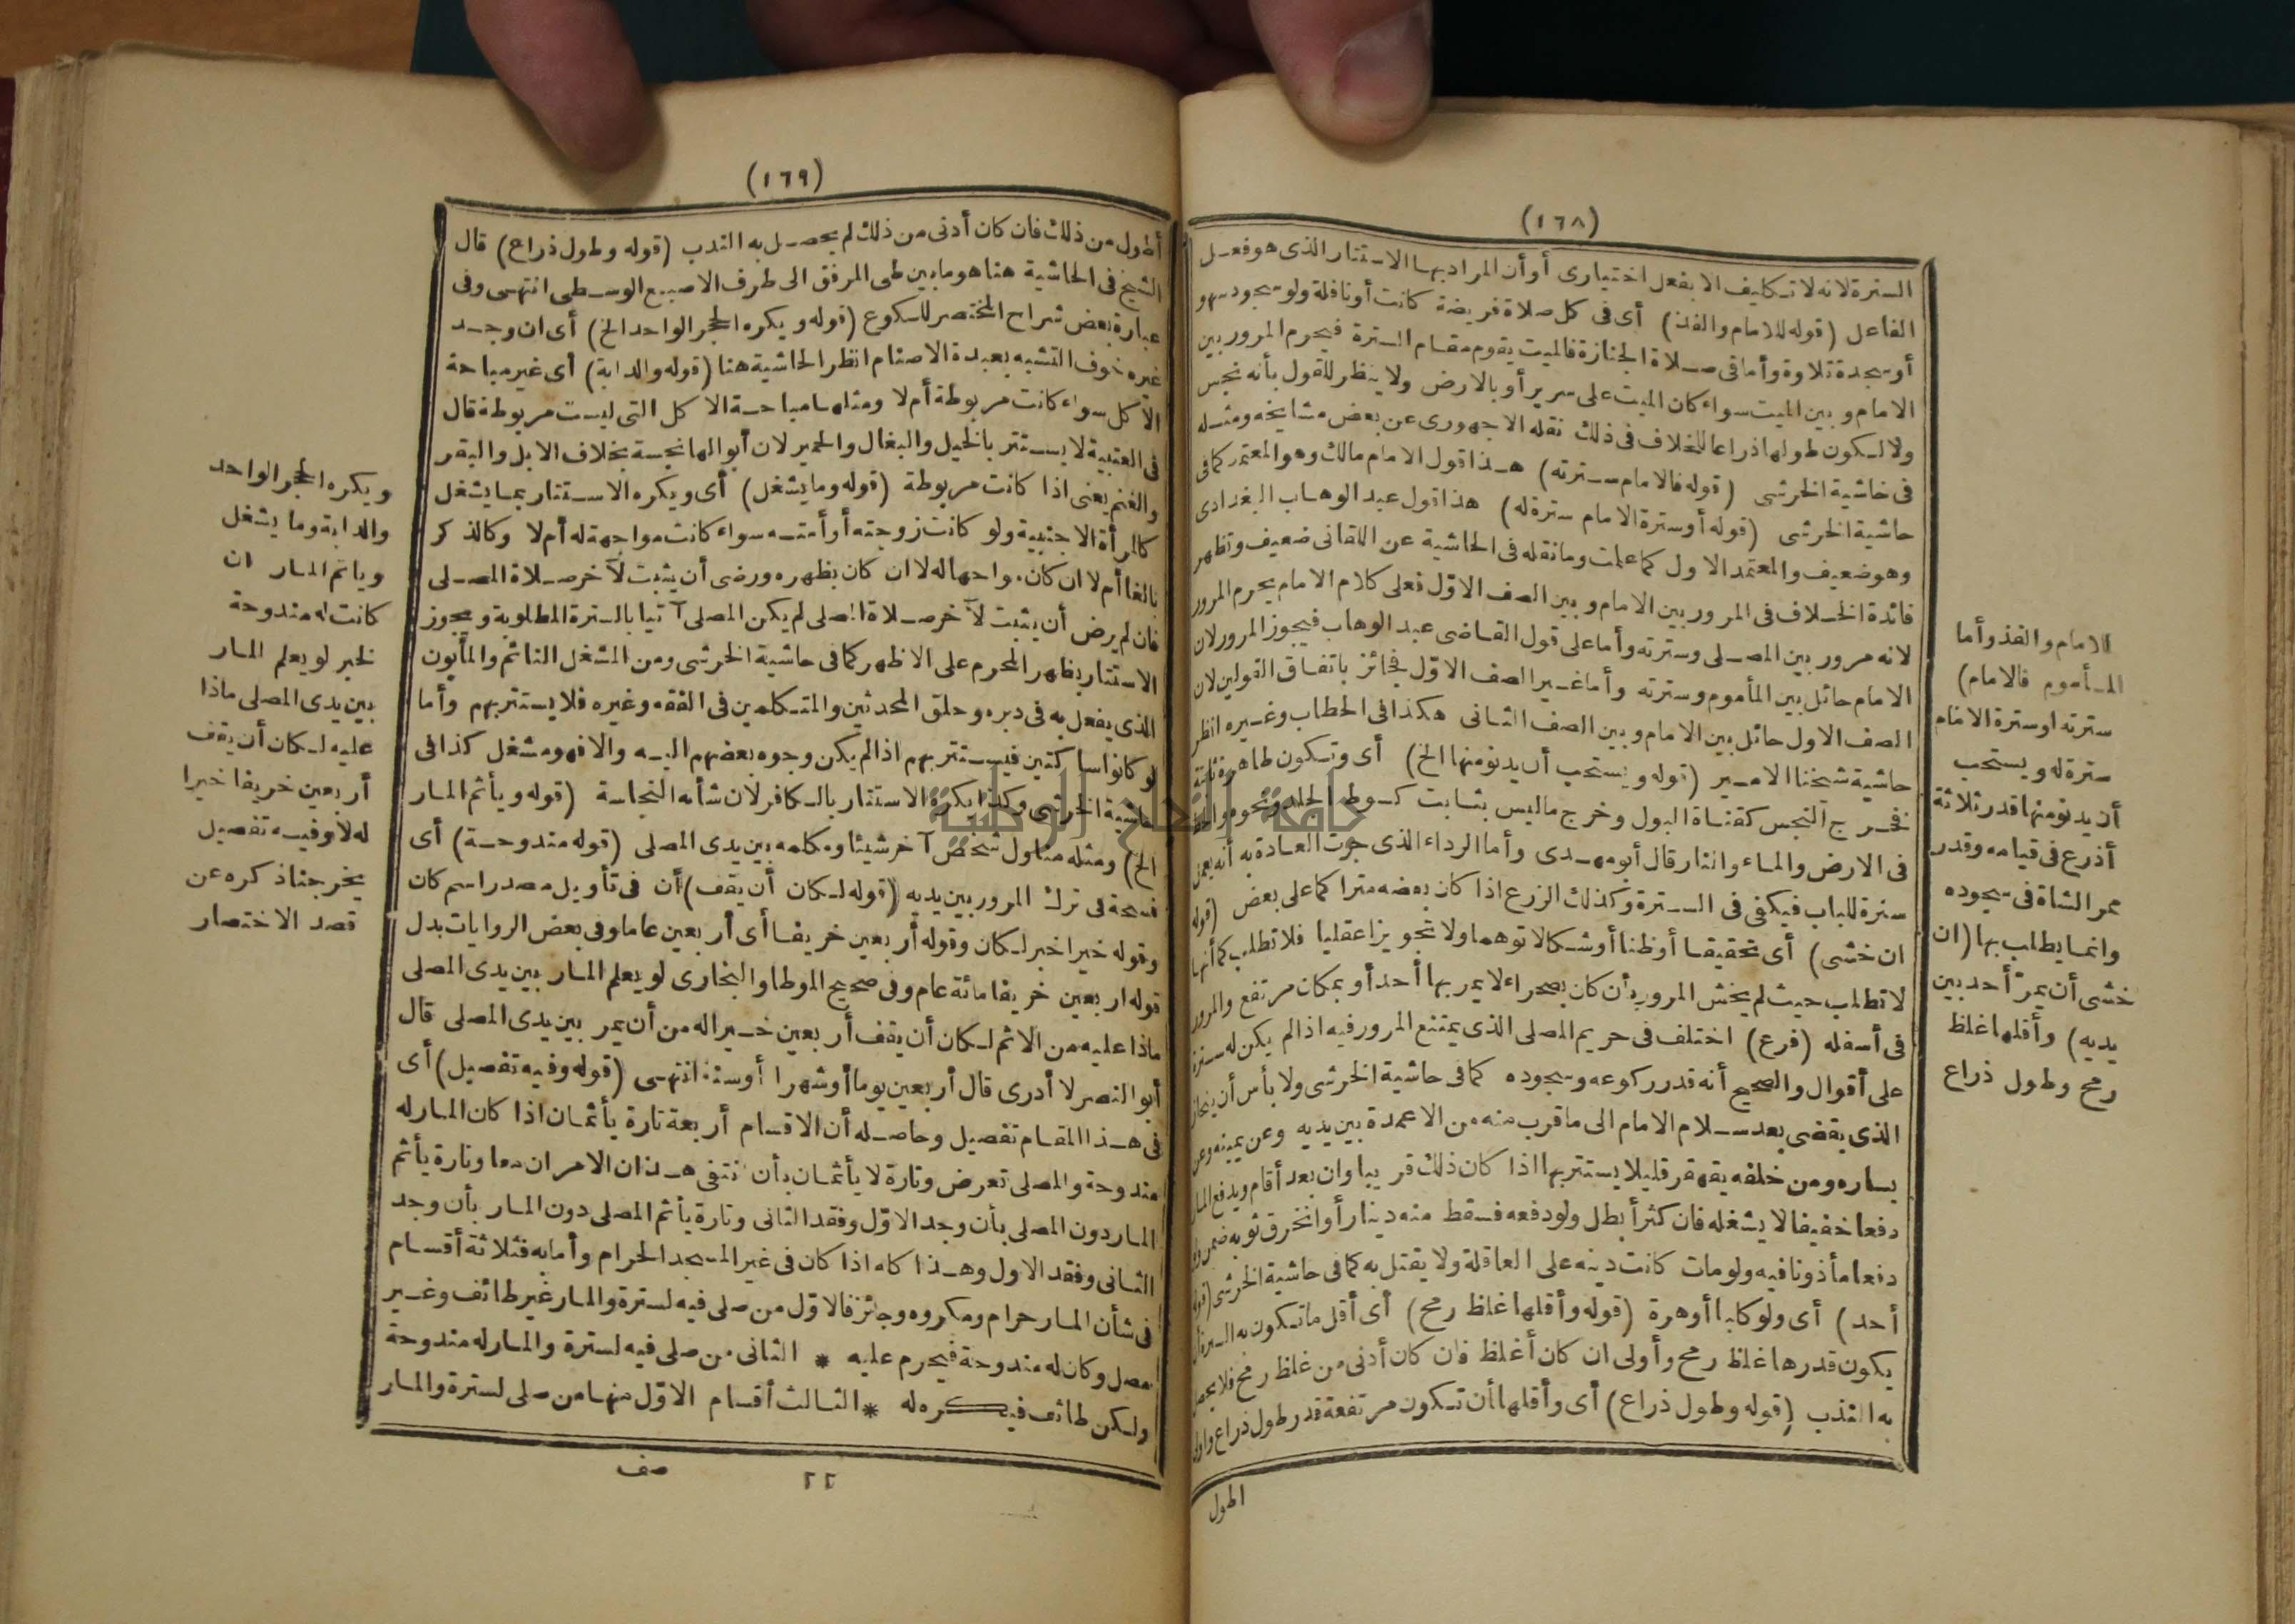 (١٦٨)
السترة لانه لا تكليف الا بفعل اختيارى أو أن المراد بها الاستتار الذى هو فعل
الفاعل (قوله للامام والفذ) أى فى كل صلاة فريضة كانت أو نافلة ولو سجود سهو
أو سجدة تلاوة وأما فى صلاة الجنازة فالميت يقوم مقام السترة فيحرم المرور بين
الامام وبين الميت سواء كان الميت على سرير أو بالارض ولا ينظر للقول بأنه نجس
ولا لكون طولها ذراعا للخلاف فى ذلك نقله الاجهورى عن بعض مشايخه ومثله
فى حاشية الخرشى (قوله فالامام سترته) هذا قول الامام مالك وهو المعتمد كما فى
حاشية الخرشى (قوله أو سترة الامام سترة له) هذا قول عبد الوهاب البغدادى
وهو ضعيف والمعتمد الاول كما علمت وما نقله فى الحاشية عن اللقانى ضعيف وتظهر
فائدة الخلاف فى المرور بين الامام وبين الصف الاوّل فعلى كلام الامام يحرم المرور
لانه مرور بين المصلى وسترته وأما على قول القاضى عبد الوهاب فيجوز المرور لان
الامام حائل بين المأموم وسترته وأما غير الصف الاوّل فجائز باتفاق القولين لان
الصف الاول حائل بين الامام وبين الصف الثانى هكذا فى الحطاب وغيره انظر
حاشية شيخنا الامير (قوله ويستحب أن يدنو منها الخ) أى وتكون طاهرة ثابتة
فخرج النجس كقناة البول وخرج ما ليس بثابت كسوط الجلد ونحوه والخط
فى الارض والماء والنار قال أبو مهدى وأما الرداء الذى جرت العادة به أنه يعمل
سترة للباب فيكفى فى السترة وكذلك الزرع اذا كان بعضه مترا كما على بعض (قوله
ان خشى) أى تحقيقا أو ظنا أو شكا لا توهما ولا تجويزا عقليا فلا تطلب كما أنها
لا تطلب حيث لم يخش المرور بأن كان بصحراء لا يمر بها أحد أو بمكان مرتفع والمرور
فى أسفله (فرع) اختلف فى حريم المصلى الذى يمتنع المرور فيه اذا لم يكن له سترة
على أقوال والصحيح أنه قدر ركوعه وسجوده كما فى حاشية الخرشى ولا بأس أن ينحاز
الذى يقضى بعد سلام الامام الى ما قرب منه من الاعمدة بين يديه وعن يمينه وعن
يساره ومن خلفه يقهقر قليلا يستتر بها اذا كان ذلك قريبا وان بعد أقام ويدفع المار
دفعا خفيفا لا يشغله فان كثر أبطل ولو دفعه فسقط منه دينار أو انخرق ثوبه ضمن ولو
دفعا مأذونا فيه ولو مات كانت ديته على العاقلة ولا يقتل به كما فى حاشية الخرشى (قوله
أحد) أى ولو كلبا أو هرة (قوله وأقلها غلظ رمح) أى أقل ما تكون به السترة أن
يكون قدرها غلظ رمح وأولى ان كان أغلظ فان كان أدنى من غلظ رمح فلا يحصل
به الندب (قوله وطول ذراع) أى وأقلها أن تكون مرتفعة قدر طول ذراع وأولى
اطول
الامام والفذ وأما
المأموم فالامام)
سترته او سترة الامام
سترة له ويستحب
أن يدنو منها قدر ثلاثة
أذرع فى قيامه وقدر
ممر الشاة فى سجوده
وانما يطلب بها (ان
خشى أن يمرّ أحد بين
يديه) وأقلها غلظ
رمح وطول ذراع
(١٦٩)
أطول من ذلك فان كان أدنى من ذلك لم يحصل به الندب (قوله وطول ذراع) قال
الشيخ فى الحاشية هنا هو ما بين طى المرفق الى طرف الاصبع الوسطى انتهى وفى
عبارة بعض شراح المختصر للكوع (قوله ويكره الحجر الواحد الخ) أى ان وجد
غيره خوف التشبه بعبدة الاصنام انظر الحاشية هنا (قوله والدابة) أى غير مباحة
الأكل سواء كانت مربوطة أم لا ومثلها مباحة الاكل التى ليست مربوطة قال
فى العتبية لا يستتر بالخيل والبغال والحمير لان أبوالها نجسة بخلاف الابل والبقر
والغنم يعنى اذا كانت مربوطة (قوله وما يشغل) أى ويكره الاستتار بما يشغل
كالمرأة الاجنبية ولو كانت زوجته أو أمته سواء كانت مواجهة له أم لا وكالذكر
بالغا أم لا ان كان مواجها له لا ان كان بظهره ورضى أن يثبت لآخر صلاة المصلى
فان لم يرض أن يثبت لآخر صلاة المصلى لم يكن المصلى آتيا بالسترة المطلوبة ويجوز
الاستتار بظهر المحرم على الاظهر كما فى حاشية الخرشى ومن المشغل النائم والمأبون
الذى يفعل به فى دبره وحلق المحدثين والمتكلمين فى الفقه وغيره فلا يستتر بهم وأما
لو كانوا ساكتين فيستتر بهم اذا لم يكن وجوه بعضهم اليه والا فهو مشغل كذا فى
حاشية الخرشى وكذا يكره الاستتار بالكافر لان شأنه النجاسة (قوله ويأثم المار
الخ) ومثله مناول شخص آخر شيئا ومكلمه بين يدى المصلى (قوله مندوحة) أى
فسحة فى ترك المرور بين يديه (قوله لكان أن يقف) أن فى تأويل مصدر اسم كان
وقوله خيرا خبر لكان وقوله أربعين خريفا أى أربعين عاما وفى بعض الروايات بدل
قوله اربعين خريفا مائة عام وفى صحيح الموطا والبخارى لو يعلم المار بين يدى المصلى
ماذا عليه من الاثم لكان أن يقف أربعين خيرا له من أن يمر بين يدى المصلى قال
أبو النصر لا أدرى قال أربعين يوما أو شهرا أو سنة انتهى (قوله وفيه تفصيل) أى
فى هذا المقام تفصيل وحاصله أن الاقسام أربعة تارة يأثمان اذا كان المار له
مندوحة والمصلى تعرض وتارة لا يأثمان بأن انتفى هذان الامران معا وتارة يأثم
المار دون المصلى بأن وجد الاوّل وفقد الثانى وتارة يأثم المصلى دون المار بأن وجد
الثانى وفقد الاول وهذا كله اذا كان فى غير المسجد الحرام وأما به فثلاثة أقسام
فى شأن المار حرام ومكروه وجائز فالاوّل من صلى فيه لسترة والمار غير طائف وغير
مصل وكان له مندوحة فيحرم عليه * الثانى من صلى فيه لسترة والمار له مندوحة
ولكن طائف فيكره له * الثالث أقسام الاوّل منها من صلى لسترة والمار
٢٢ صف
ويكره الحجر الواحد
والدابة وما يشغل
وياثم المار ان
كانت له مندوحة
لخبر لو يعلم المار
بين يدى المصلى ماذا
عليه لكان أن يقف
أربعين خريفا خيرا
له لا وفيه تفصيل
يخرجنا ذكره عن
قصد الاختصار
جامعة النجاح الوطنية